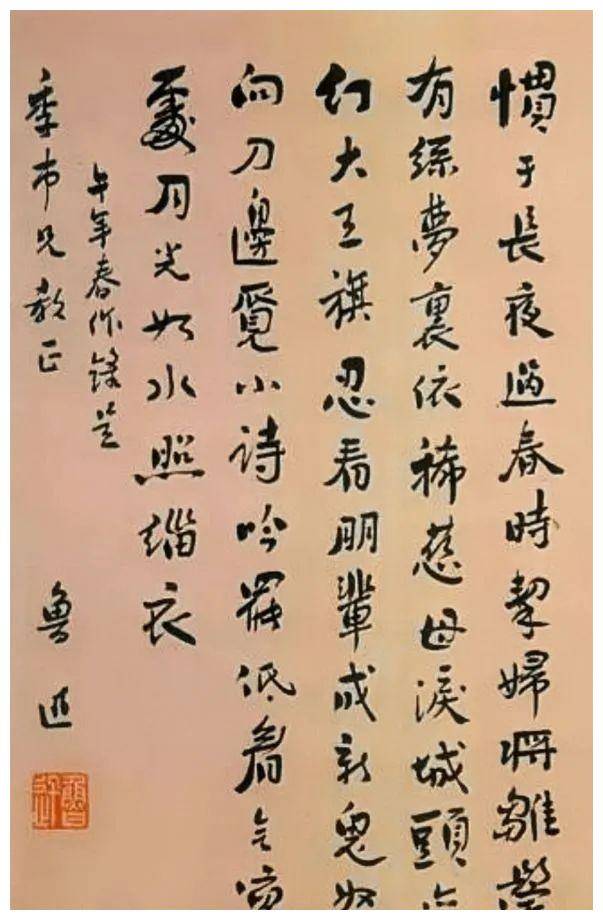 慣于長夜過春時挈婦將雛鬢
有絲夢裏依稀慈母淚城頭
幻大王旗忍看朋輩成新鬼
向刀邊覓小詩吟罷低眉无
處月光如水照緇衣
午年春作錄呈
季市兄教正
魯迅
魯迅